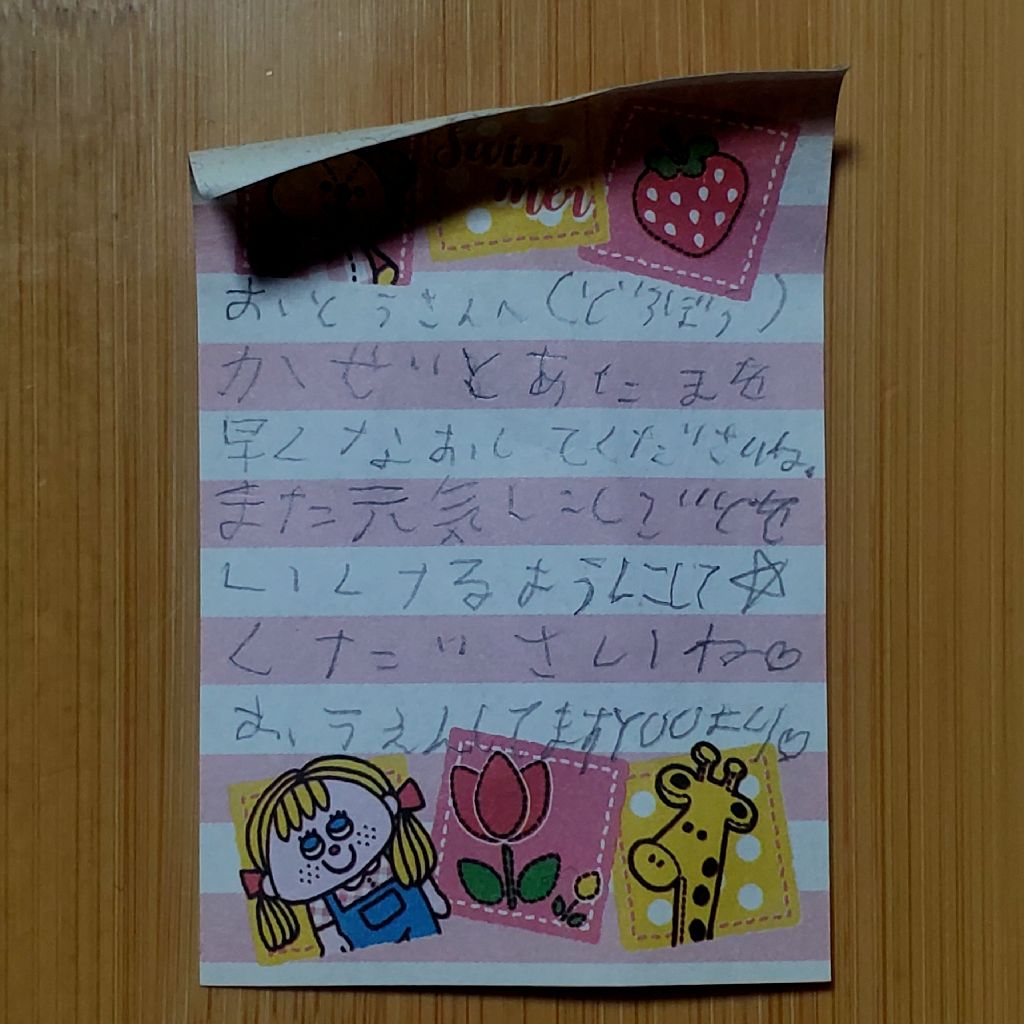 Swim
mer
おとうさんへ(どろぼう)
かぜとあたまを
早くなおしてくださいね。
また元気にして
いけるようにして☆
くださいね♡
おうえんしてます YOOより♡